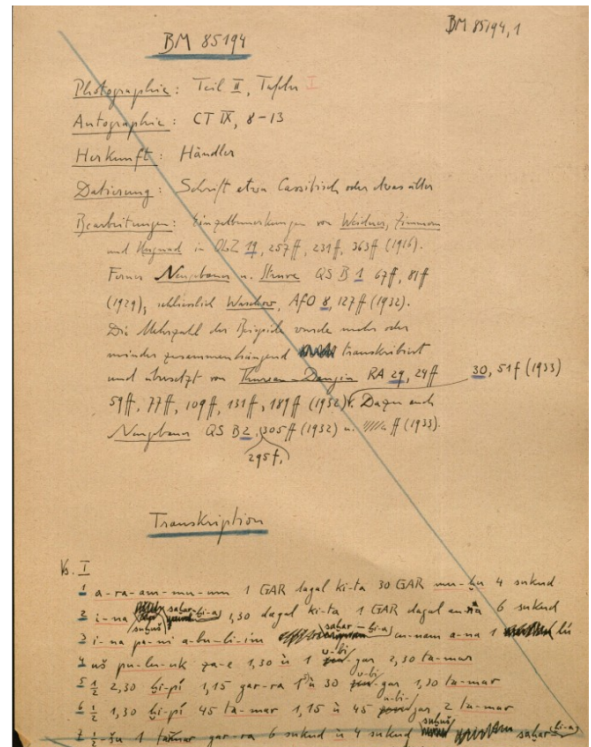 BM 85194,1
BM 85194
Photographie: Teil II, Tafeln I
Autographie: CT IX, 8-13
Herkunft: Händler
Datierung: Schrift etwa Cassitisch oder etwas älter
Bearbeitungen: Einzelbemerkungen von Weidner, Zimmern
und Ungnad in OLZ 19, 257ff, 231ff, 363ff (1916).
Ferner Neugebauer u. Struve QS B 1 67ff, 81ff
(1929), schliesslich Waschow, AfO 8, 127ff (1932).
Die Mehrzahl der Beispiele wurde mehr oder
minder zusammenhängend transkribiert
und übersetzt von Thureau-Dangin RA 29, 24ff 30, 51f (1933)
59ff, 77ff, 109ff, 131ff, 189ff (1932). Dazu auch
Neugebauer QS B 2, 305ff (1932) u. ff (1933).
295f,
Transkription
Vs. I
1 a-ra-am-mu-um 1 GAR dagal ki-ta 30 GAR mu-ḫu 4 sukud
2 i-na saḫar-ḫi-a 1,30 dagal ki-ta 1 GAR dagal an-na 6 sukud
suḫuš
3 i-na pa-ni a-bu-li-im saḫar-ḫi-a a-na 1 lú
4 uš pu-lu-uk za-e 1,30 ù 1 u-bi gar 2,30 ta-mar
5 ½ 2,30 ḫi-pí 1,15 gar-ra 1 ù 30 u-bi-gar 1,30 ta-mar
6 ½ 1,30 ḫi-pí 45 ta-mar 1,15 ù 45 u-bi-gar, 2 ta-mar
7 ½-šu 1 gar-ra 6 sukud ù 4 sukud suḫuš saḫar ḫi-a